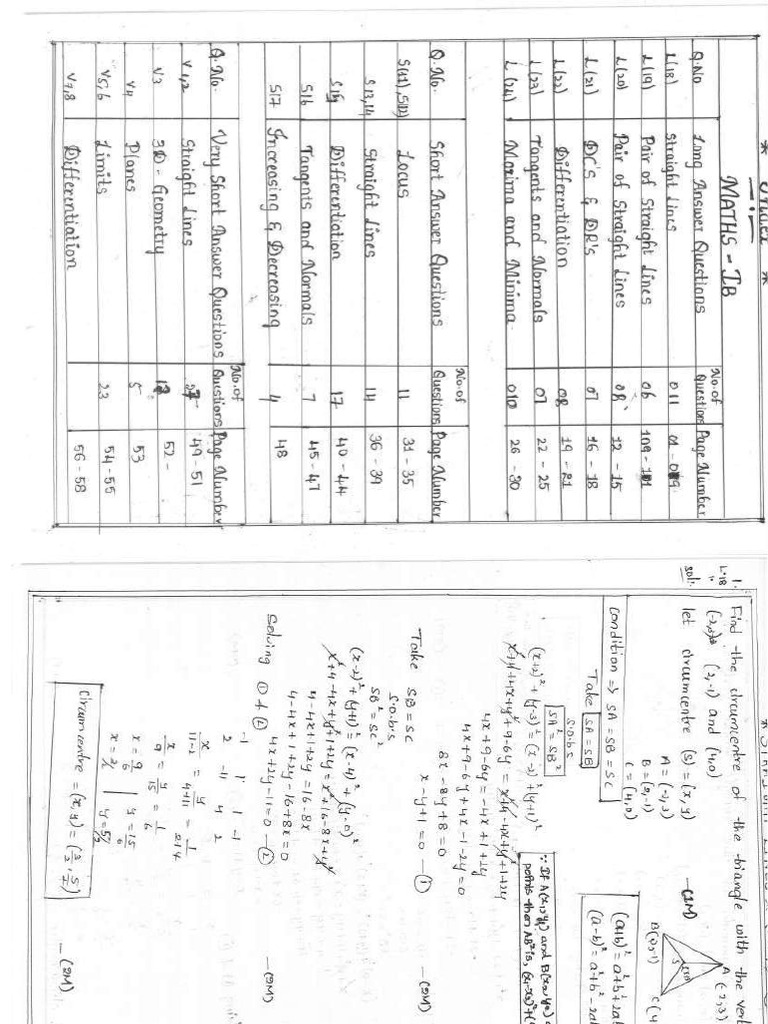 * Index *
MATHS - IB
Q.No Long Answer Questions No.of Questions Page Number
L(18) Straight Lines 011 01 - 09
L(19) Pair of Straight Lines 06
L(20) Pair of Straight Lines 08 12 - 15
L(21) DC's & DR's 07 16 - 18
L(22) Differentiation 08 19 - 21
L(23) Tangents and Normals 07 22 - 25
L(24) Maxima and Minima 010 26 - 30
Q.No. Short Answer Questions No.of Questions Page Number
S(11), S(12) Locus 11 31 - 35
S13,14 Straight Lines 14 36 - 39
S15 Differentiation 17 40 - 44
S16 Tangents and Normals 7 45 - 47
S17 Increasing & Decreasing 4 48
Q.No. Very Short Answer Questions No.of Questions Page Number
V1,2 Straight Lines 49 - 51
V3 3D - Geometry 52 -
V4 Planes 5 53
V5,6 Limits 23 54 - 55
V7,8 Differentiation 56 - 58
1. Find the circumcentre of the triangle with the
L-18 (-2,3) (2,-1) and (4,0)
sol: let circumcentre (S) = (x, y) -(1M)
A = (-2,3)
B = (2,-1)
C = (4,0)
A (-2,3)
B(2,-1)
S
C(4
Condition => SA = SB = SC
(a+b)² = a²+b²+2ab
(a-b)² = a²+b²-2ab
Take SA = SB
S.O.b.S
SA² = SB²
∵ If A(x₁,y₁) and B(x₂,y₂)
points then AB² is,
(x+2)² + (y-3)² = (x-2)² + (y+1)²
x²+4+4x+y²+9-6y = x²+4-4x+y²+1+2y
4x+9-6y = -4x+1+2y
4x+9-6y+4x-1-2y = 0
8x - 8y + 8 = 0
x - y + 1 = 0 — ① -(2M)
Take SB = SC
S.O.b.S
SB² = SC²
(x-2)² + (y+1)² = (x-4)² + (y-0)²
x²+4-4x+y²+1+2y = x²+16-8x+y²
4-4x+1+2y = 16-8x
4-4x+1+2y-16+8x = 0
4x+2y-11 = 0 — ② -(2M)
Solving ① & ②
-1 1 1 -1
2 -11 4 2
x/(11-2) = y/(4+11) = 1/(2+4)
x/9 = y/15 = 1/6
x = 9/6 y = 15/6
x = 3/2 y = 5/2
Circumcentre = (x, y) = (3/2, 5/2) -(2M)